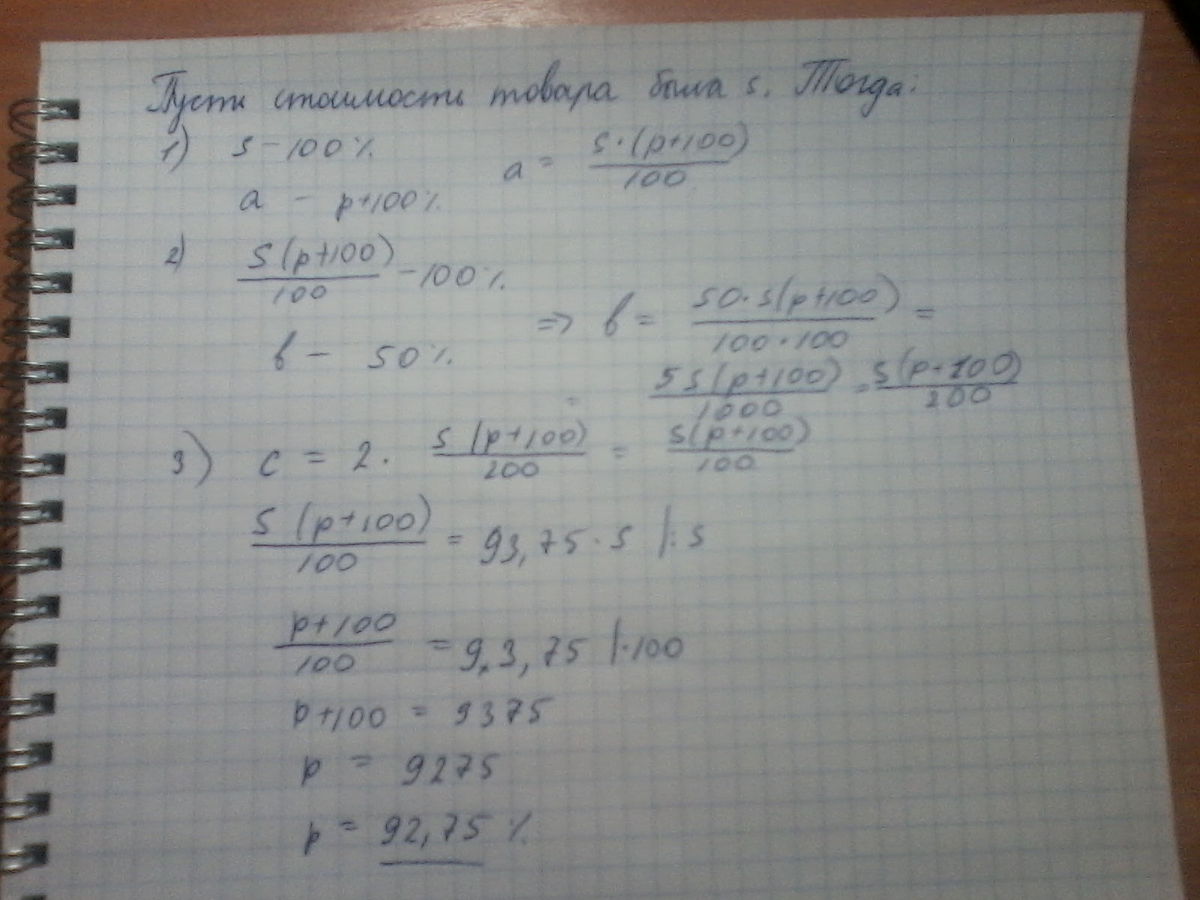 Пусть стоимость товара была s. Тогда:
1) s - 100%
a = s·(p+100)/100
a - p+100%
2) s(p+100)/100 - 100%
b - 50%
=> b = 50·s(p+100)/100·100 =
= 5s(p+100)/1000 = s(p+100)/200
3) c = 2· s(p+100)/200 = s(p+100)/100
s(p+100)/100 = 93,75·s |:s
p+100/100 = 93,75 |·100
p+100 = 9375
p = 9275
p = 92,75 %